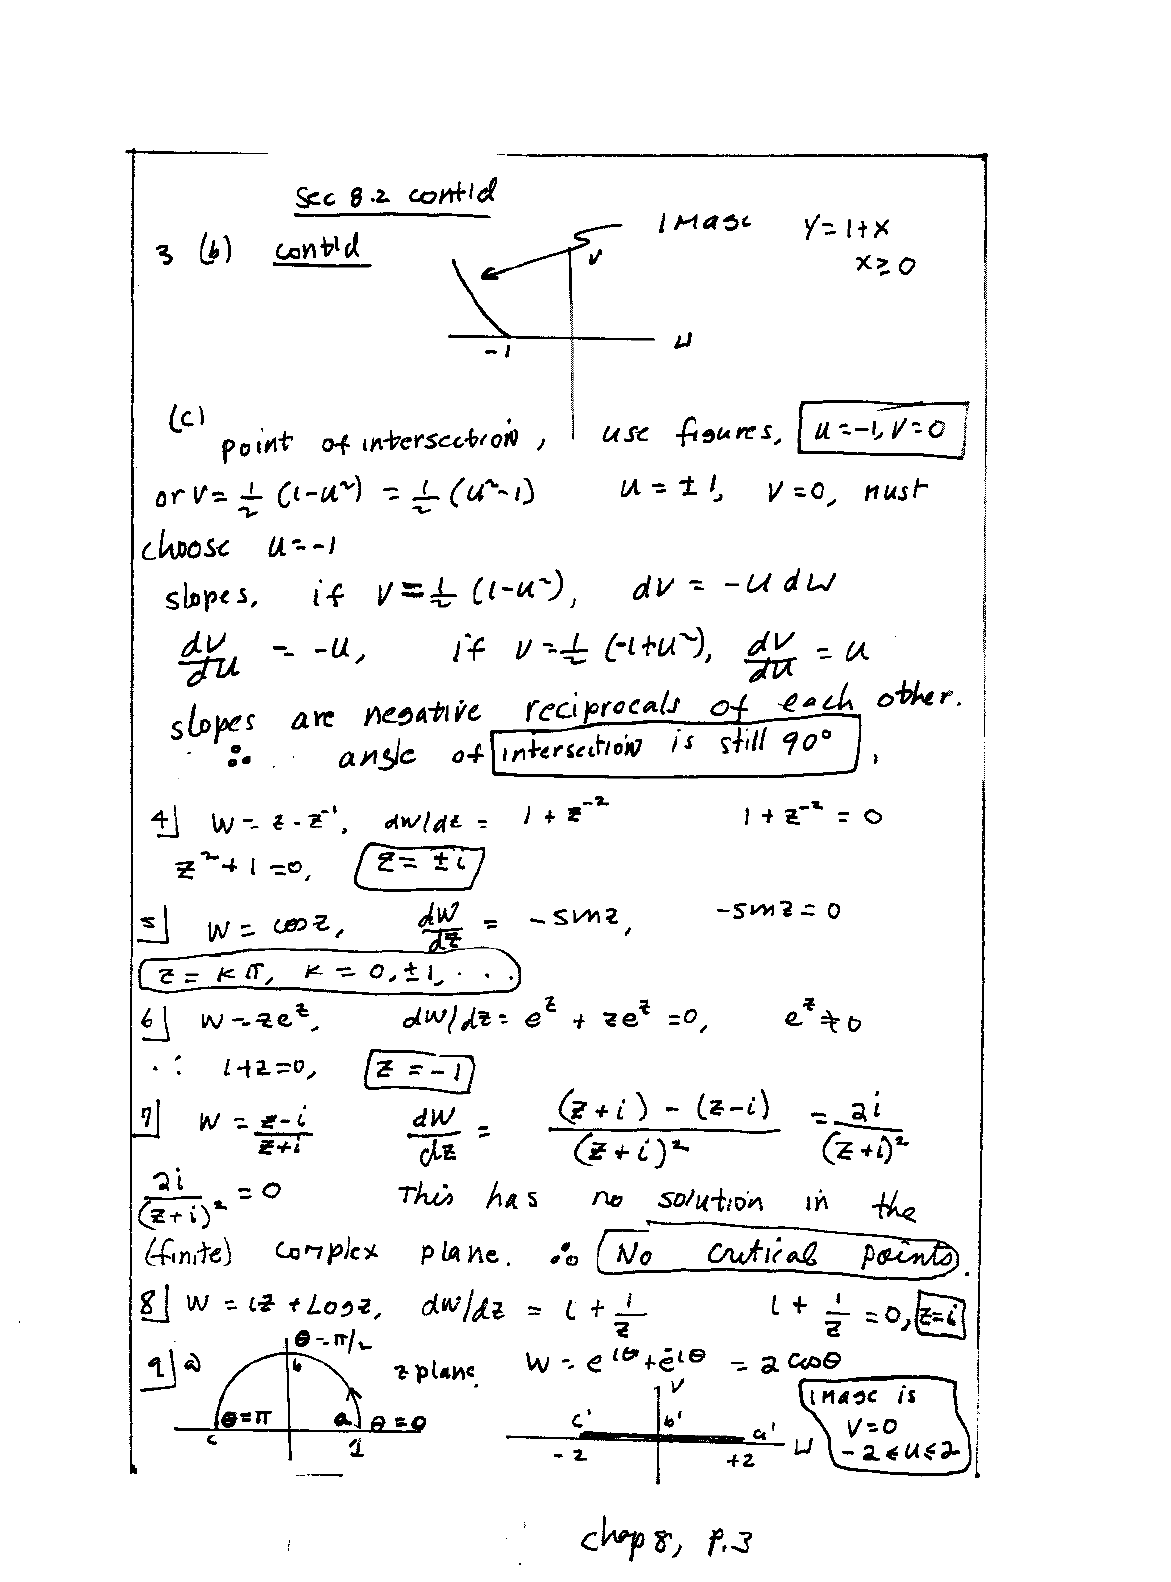 Sec 8.2 cont'd
3 (b) cont'd
Image y=1+x
x≥0
v
-1 u
(c)
point of intersection, use figures, u=-1, v=0
or v= 1/2 (1-u²) = 1/2 (u²-1) u = ±1, v=0, must
choose u=-1
slopes, if v= 1/2 (1-u²), dv = -u du
dv/du = -u, if v= 1/2 (-1+u²), dv/du = u
slopes are negative reciprocals of each other.
∴ angle of intersection is still 90°.
4] w = z - z⁻¹, dw/dz = 1 + z⁻² 1 + z⁻² = 0
z² + 1 = 0, z = ±i
5] w = cos z, dw/dz = -sin z, -sin z = 0
z = kπ, k = 0, ±1, . . .
6] w = ze^z, dw/dz = e^z + ze^z = 0, e^z ≠ 0
∴ 1+z=0, z = -1
7] w = (z-i)/(z+i) dw/dz = ((z+i) - (z-i))/(z+i)² = 2i/(z+i)²
2i/(z+i)² = 0 This has no solution in the
(finite) complex plane. ∴ No critical points.
8] w = iz + Log z, dw/dz = i + 1/z i + 1/z = 0, z=i
9] a) θ=π/2 b z plane w = e^{iθ} + e^{-iθ} = 2 cos θ
θ=π a θ=0
c 1
v
c' b' a'
-2 +2 u
image is
v=0
-2≤u≤2
chap 8, p.3